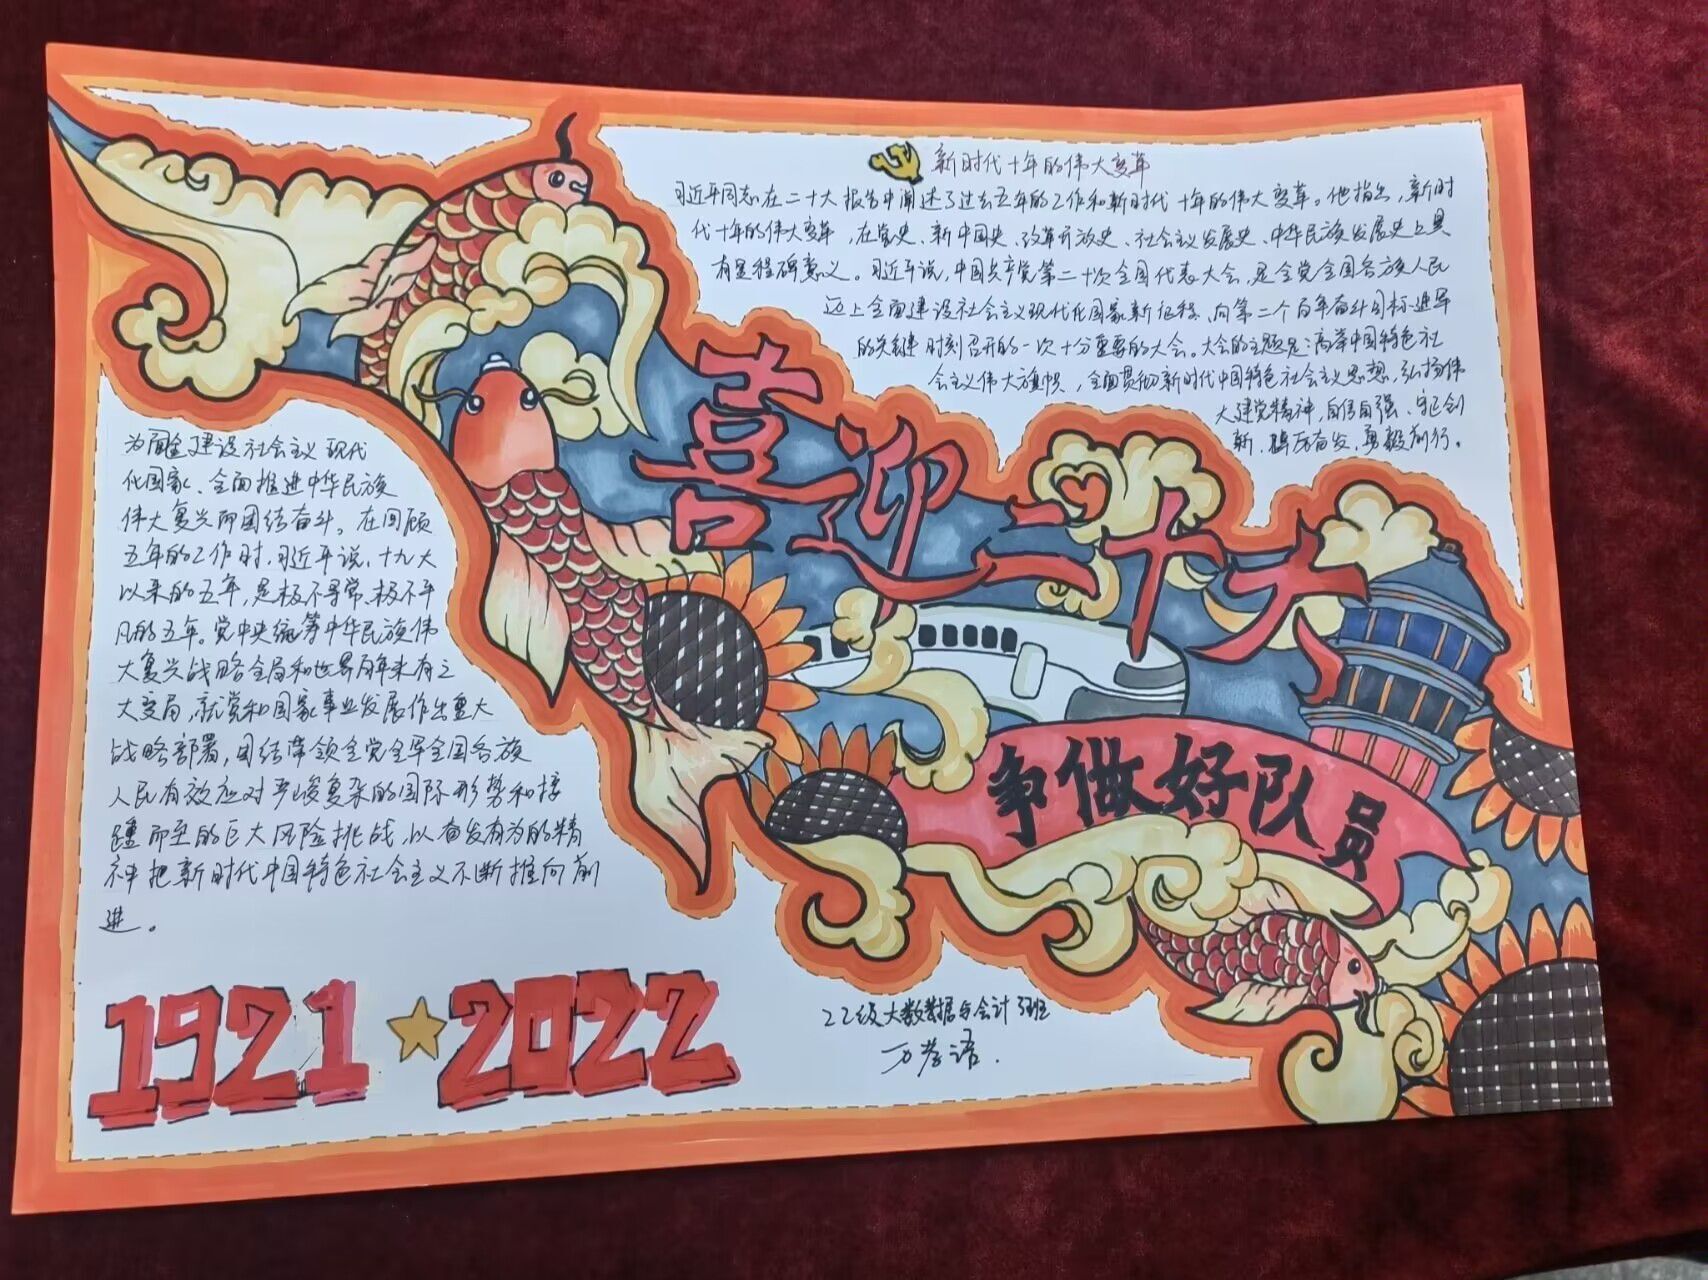 新时代十年的伟大变革
习近平同志在二十大报告中阐述了过去五年的工作和新时代十年的伟大变革。他指出,新时
代十年的伟大变革,在党史、新中国史、改革开放史、社会主义发展史、中华民族发展史上具
有里程碑意义。习近平说,中国共产党第二十次全国代表大会,是全党全国各族人民
迈上全面建设社会主义现代化国家新征程、向第二个百年奋斗目标进军
的关键时刻召开的一次十分重要的大会。大会的主题是:高举中国特色社
会主义伟大旗帜,全面贯彻新时代中国特色社会主义思想,弘扬伟
大建党精神,自信自强、守正创
新,踔厉奋发、勇毅前行。
喜迎二十大
争做好队员
为全面建设社会主义现代
化国家、全面推进中华民族
伟大复兴而团结奋斗。在回顾
五年的工作时,习近平说,十九大
以来的五年,是极不寻常、极不平
凡的五年。党中央统筹中华民族伟
大复兴战略全局和世界百年未有之
大变局,就党和国家事业发展作出重大
战略部署,团结带领全党全军全国各族
人民有效应对严峻复杂的国际形势和接
踵而至的巨大风险挑战,以奋发有为的精
神把新时代中国特色社会主义不断推向前
进。
1921 2022
22级大数据与会计3班